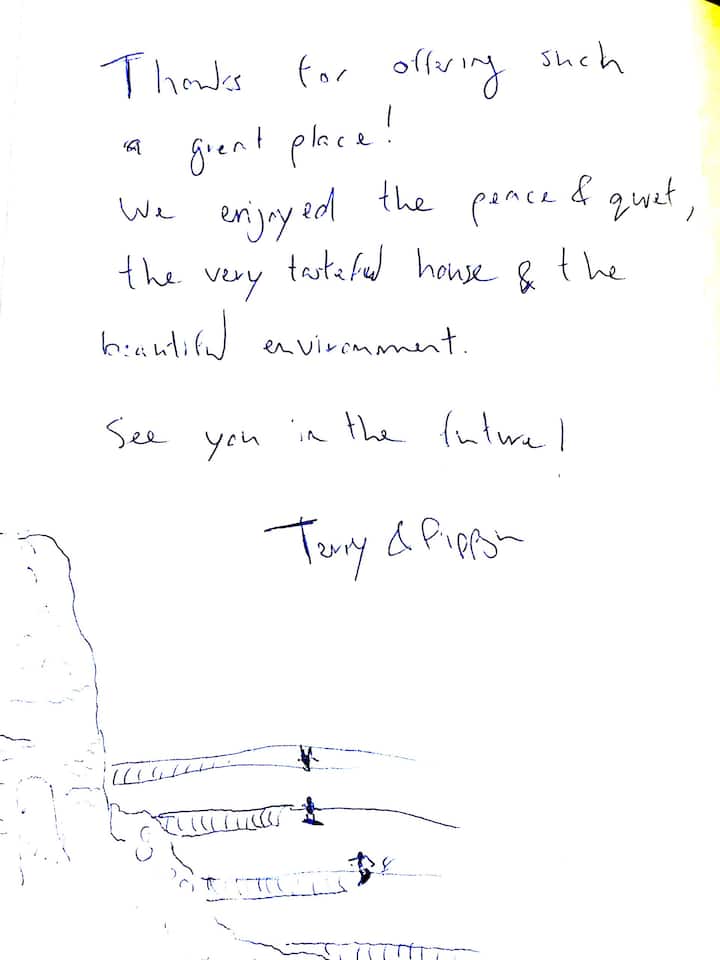 Thanks for offering such
a great place!
We enjoyed the peace & quiet,
the very tasteful house & the
beautiful environment.
See you in the future!
Terry &